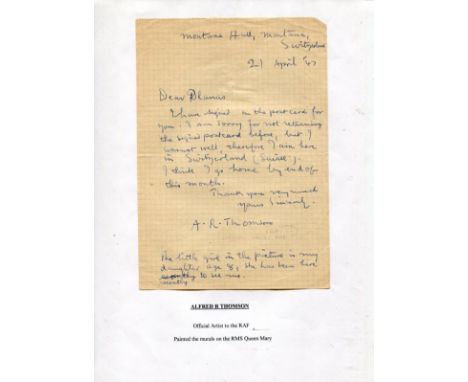 Montana Hall, Montana,
Switzerland
21 April '47
Dear
I have signed on the postcard for
you. I am sorry for not returning
the signed postcard before, but I
was not well, therefore I am here
in Switzerland
I think I go home by end of
this month.
Thank you very much
yours Sincerely
A. R. Thomson
The little girl in the picture is my
daughter age 8, she has been here
to see me.
ALFRED R THOMSON
Official Artist to the RAF
Painted the murals on the RMS Queen Mary